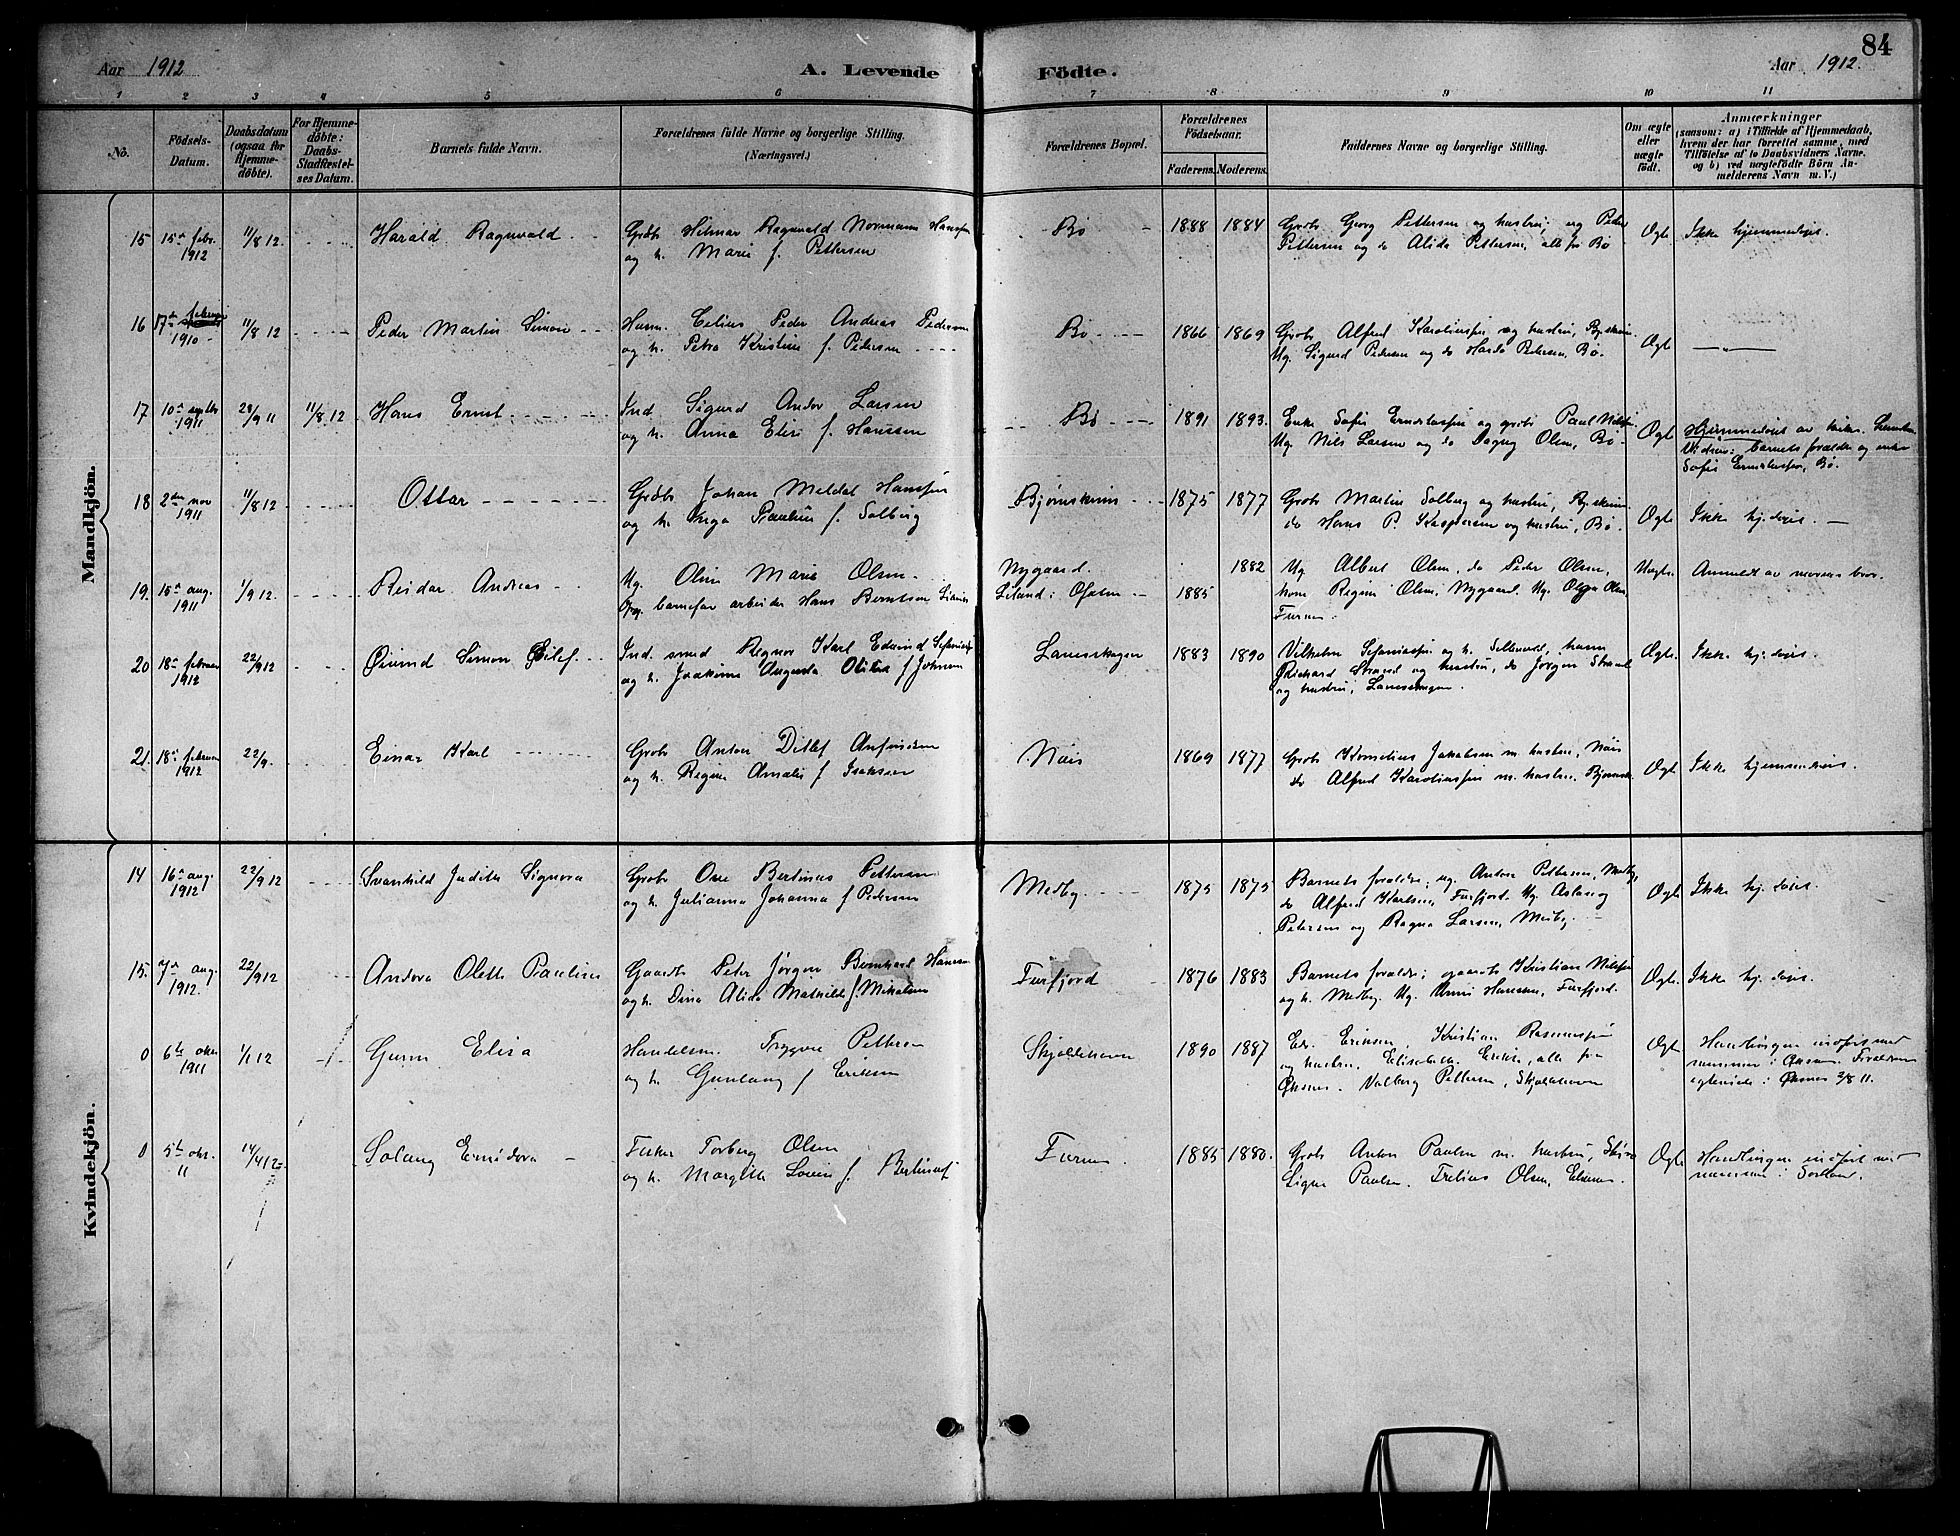 84
Aar 1912
A. Levende
Födte.
Aar 1912.
1 2 3 4 5 6 7 8 9 10 11
No.
Födsels-
Datum.
Daabsdatum
(ogsaa for
Hjemme-
döbte).
For Hjemme-
döbte:
Daabs-
Stadfæstel-
ses Datum.
Barnets fulde Navn.
Forældrenes fulde Navne og borgerlige Stilling.
(Næringsvei.)
Forældrenes Bopæl.
Forældrenes
Födselsaar.
Faderens. Moderens.
Faddernes Navne og borgerlige Stilling.
Om ægte
eller
uægte
födt.
Anmærkninger
(saasom: a) i Tilfælde af Hjemmedaab,
hvem der har forrettet samme, med
Tilföielse af to Daabsvidners Navne,
og b) ved uægtefödte Börn An-
melderens Navn m. V.)
Mandkjön.
15 15de febr. 1912 11/8 12. Harald Ragnvald
Grdbr Hilmar Ragnvald Normann Hansen
og h. Marie f. Pettersen
Bø 1888 1884
Grdb. Georg Pettersen og hustru; ug Peder
Pettersen og do Alida Pettersen, alle fra Bø
Ægte Ikke hjemmedøpt.
16 17de februar 1910 11/8 12 Peder Martin Simon
Husm. Celius Peder Andreas Pedersen
og h. Petra Kristine f. Pedersen
Bø 1866 1869
Grdb. Alfred Karoliussen og hustru, Bj.skinn.
Ug. Sigurd Pedersen og do Petersen, Bø.
Ægte —„—
17 10de 1911 28/9 11 11/8 12 Hans Ernst
Ind. Sigurd Andor Larsen
og h. Anna Elise f. Hanssen
Bø 1891 1893.
Enke Sofie og grdb. Paul Nilsen
Ug. Nils Larsen og do Dagny Olsen, Bø
Ægte Hjemmedøpt av
barnets forældre og enke
Sofie Bø.
18 2den nov 1911 11/8 12 Ottar
Grdbr Johan Meldal Hanssen
og h. Inga Pauline f. Solberg
Bjørnskinn 1875 1877
Grdb Martin Solberg og hustru, Bj.skinn
do Hans P. Kaspersen og hustru, Bø.
Ægte Ikke hj.døpt.
19. 15de aug. 1911 1/9 12. Reidar Andreas
Ug. Oline Marie Olsen
Opg. barnefar arbeider Hans Berntsen
Nygaard
Leland i Ofoten 1885 1882
Ug Albert Olsen, do Peter Olsen,
kone Regine Olsen, Nygaard. Ug. Olga Olsen
Furnes.
Uægte. Anmeldt av morens bror.
20 18de februar 1912 22/9 12 Øivind Simon Eilef
Ind. smed Ragnor Karl Edvind
og h. Joakime Augusta f Johnsen
Lanesskogen 1883 1890
Vilhelm og h.
Richard Strand og hustru, do Jørgen Strand
og hustru, Lanesskogen.
Ægte. Ikke hj.døpt.
21. 18de februar 1912 22/9. Einar Karl
Grdb Anton Ditlef Anfindsen
og h. Regine Amalie f Isaksen
Nöis 1869 1877
Grdb Kornelius Jakobsen m. hustru, Nöis
do Alfred Karoliussen m. hustru, Bjørnsk.
Ægte Ikke hjemmedøpt.
Kvindekjön.
14 16de aug. 1912 22/9 12 Svanhild Judith Signora
Grdb Ove Bertinus Pettersen
og h. Julianna Johanna f Pedersen
Medby 1875 1875
Barnets forældre; ug. Anton Pettersen, Medby,
do Alfred Karlsen, Furfjord. Ug. Aslaug
Petersen og Ragna Larsen, Medby.
Ægte Ikke hj.døpt.
15. 7de aug. 1912. 22/9 12 Andora Olette Pauline
Gaardb Peter Jørgen Bernhard Hansen
og h. Dina Alida Mathilde f. Mikalsen
Furfjord 1876 1883
Barnets forældre; gaardb Kristian Nilsen
og h. Medby. Ug. Hansen, Furfjord.
Ægte. Ikke hj.døpt.
0 6te okt 1911 1/1 12 Gunn Elisa
Handelsm. Trygve Pettersen
og h. Gunlaug f Eriksen
Skjoldehavn 1890 1887
Ed. Eriksen, Kristian Rasmussen
og hustru, Elisabeth Eriksen, alle fra
Øksnes. Valborg Pettersen, Skjoldehavn
Ægte Handlingen indført med
nummer i Øksnes. Forældrene
egteviede i Øksnes 3/8 11.
0 5te okt. 11 14/4 12 Solaug Ensidora
Fisker Torberg Olsen
og h. Margitte Lovise f. Bertinsen
Furnes. 1885 1880.
Grdb Anton Paulsen m. hustru,
Signe Paulsen. Trelius Olsen,
Ægte Handlingen indført med
nummer i Sortland.